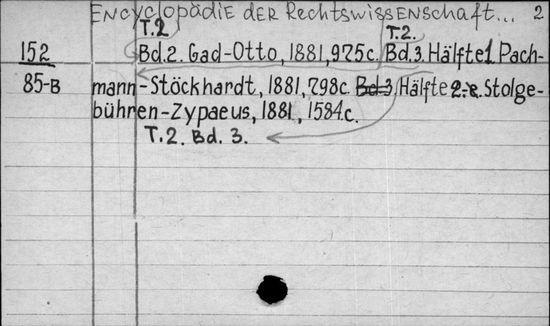 Encyclopädie der Rechtswissenschaft... 2
T.2 T.2.
152 Bd.2. Gad-Otto, 1881, 975c. Bd.3. Hälfte 1 Pach-
85-B mann-Stöckhardt, 1881, 798c. Bd.3, Hälfte 2. Stolge-
bühren-Zypaeus, 1881, 1584c.
T.2. Bd. 3.